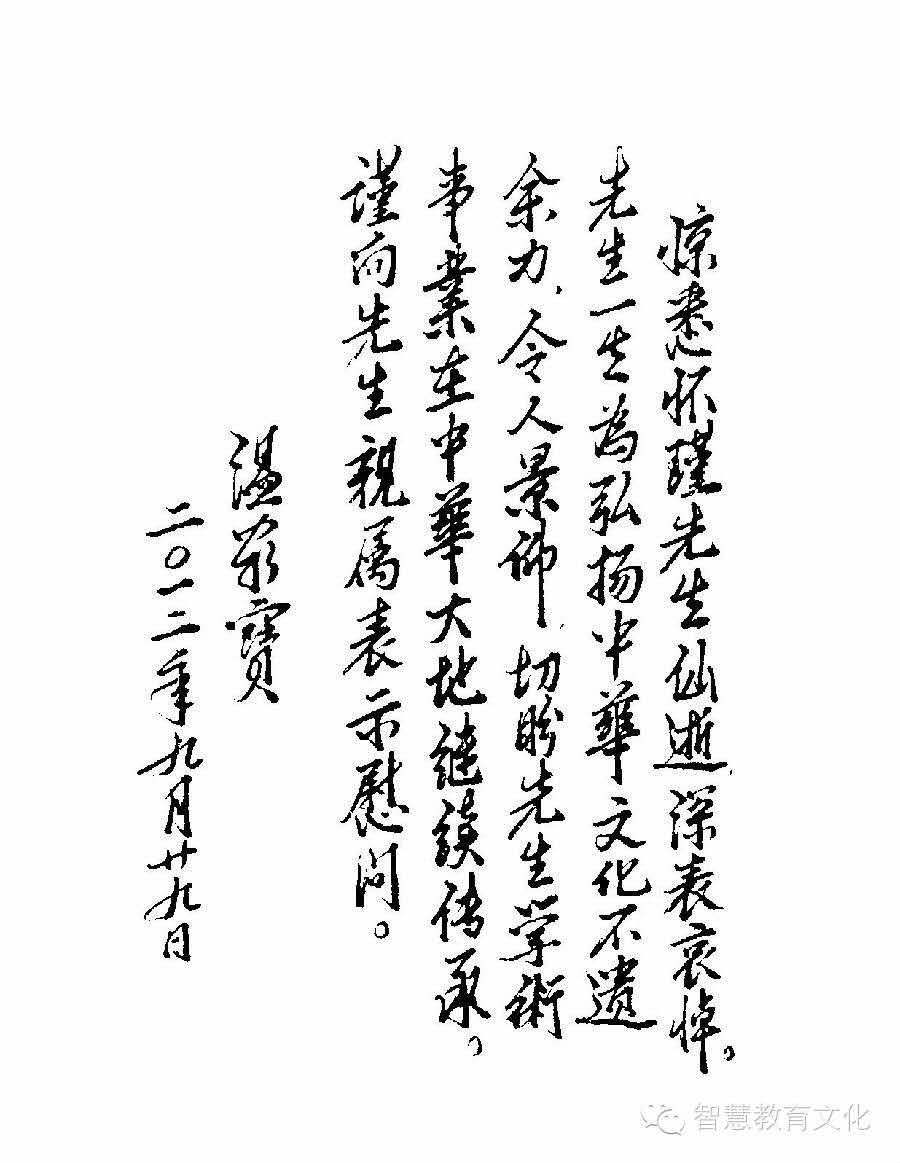 惊悉怀瑾先生仙逝,深表哀悼。
先生一生為弘扬中華文化不遗
余力,令人景仰,切盼先生学術
事業在中華大地继续传承。
谨向先生親属表示慰问。
温家寶
二〇一二年九月廿九日
智慧教育文化